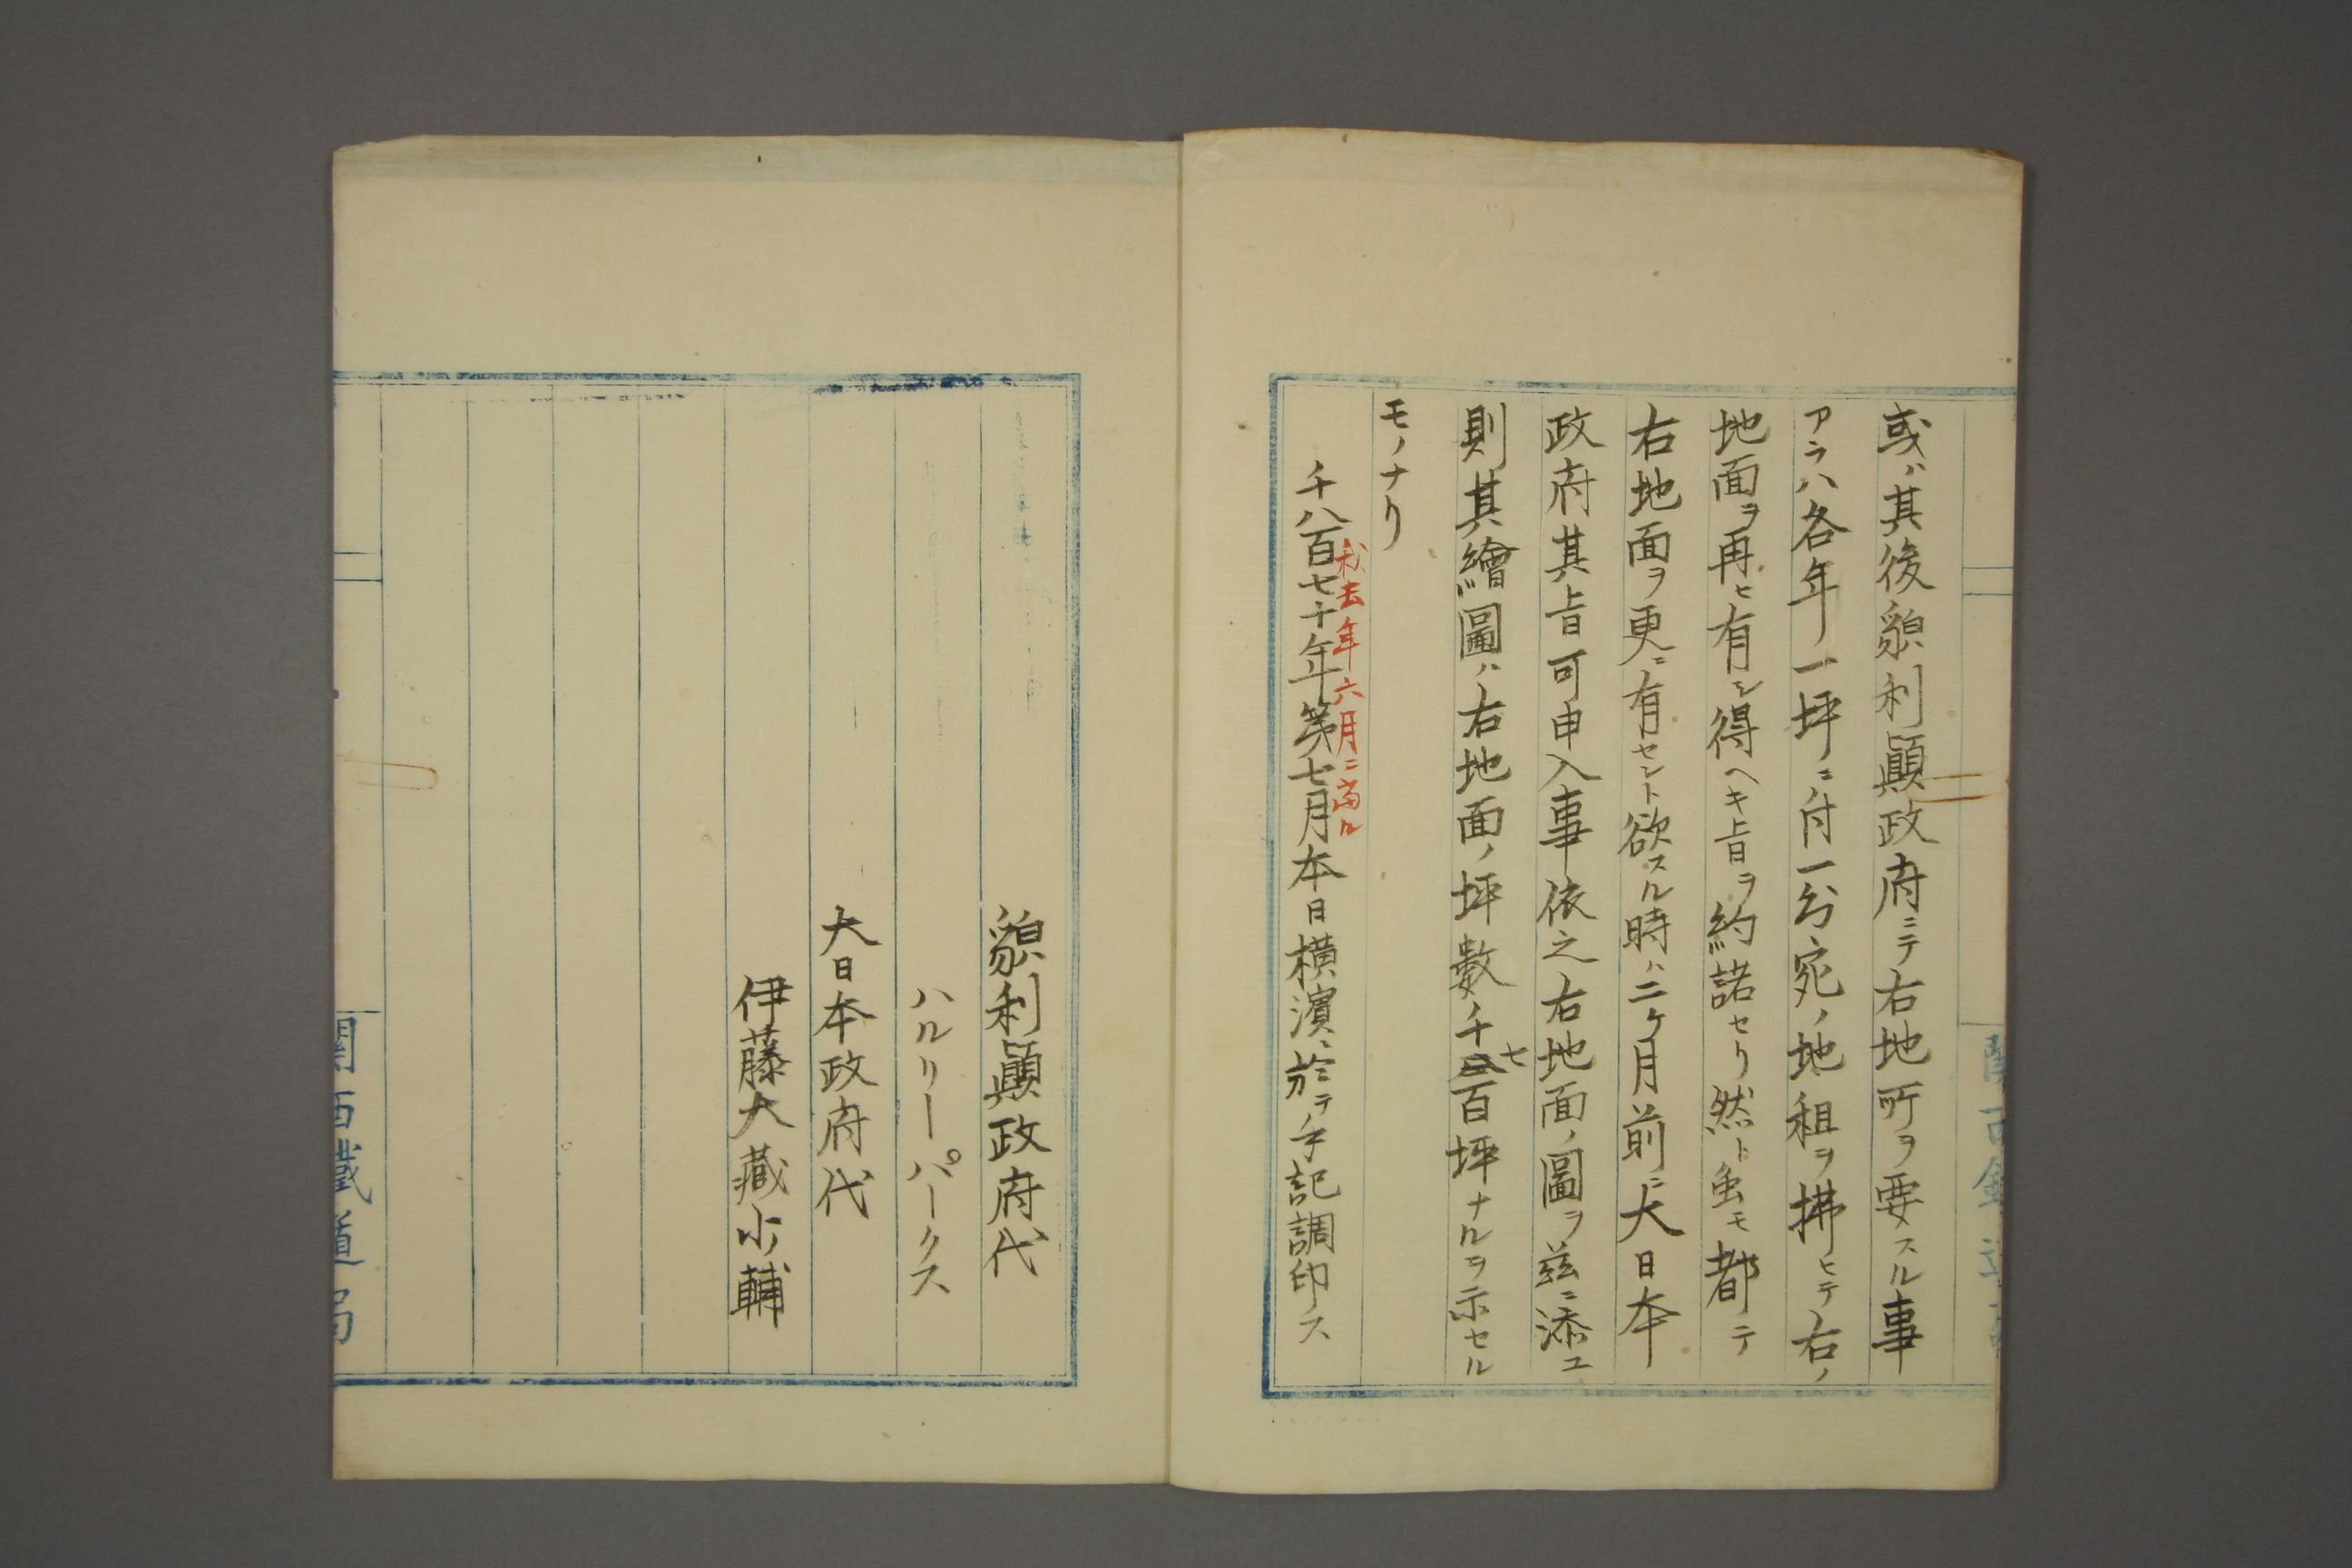 或ハ其後貌利顚政府ニテ右地所ヲ要スル事
アラハ各年一坪ニ付一分宛ノ地租ヲ拂ヒテ右ノ
地面ヲ再ヒ有シ得ヘキ旨ヲ約諾セリ然ト虽モ都テ
右地面ヲ更ニ有セント欲スル時ハ二ケ月前ニ大日本
政府其旨可申入事依之右地面ノ圖ヲ茲ニ添ユ
則其繪圖ハ右地面ノ坪數ノ千七百坪ナルヲ示セル
モノナリ
我去年六月ニ當ル
千八百七十年第七月本日横濱ニ於テ手記調印ス
貌利顚政府代
ハルリーパークス
大日本政府代
伊藤大藏少輔
關西鐵道局